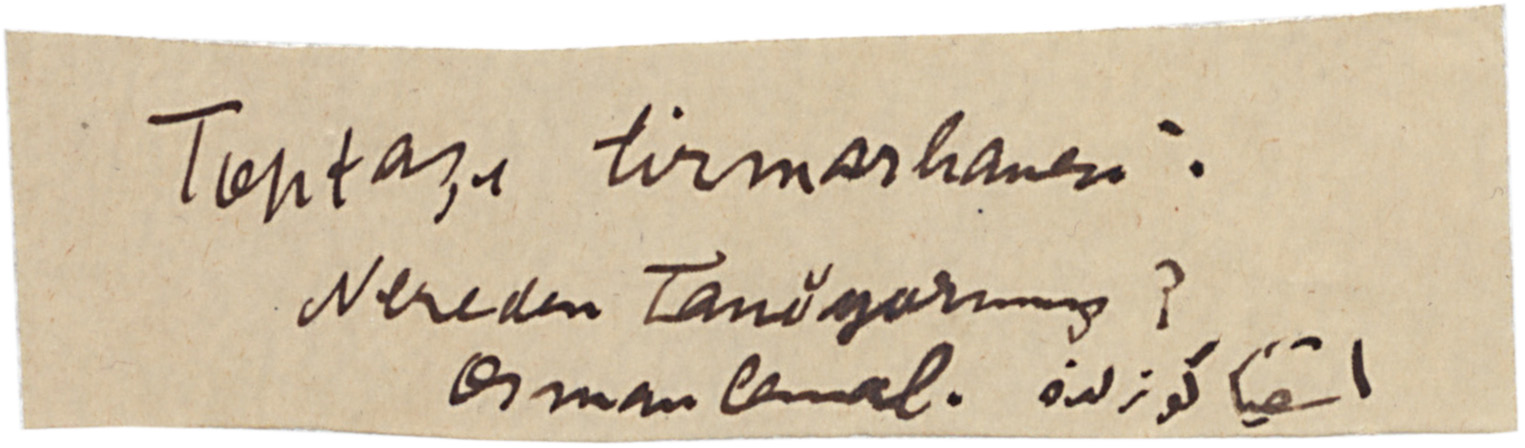 Toptaşı tirmarhanesi.
Nereden Tanıyorsunuz?
Osman Cemal.